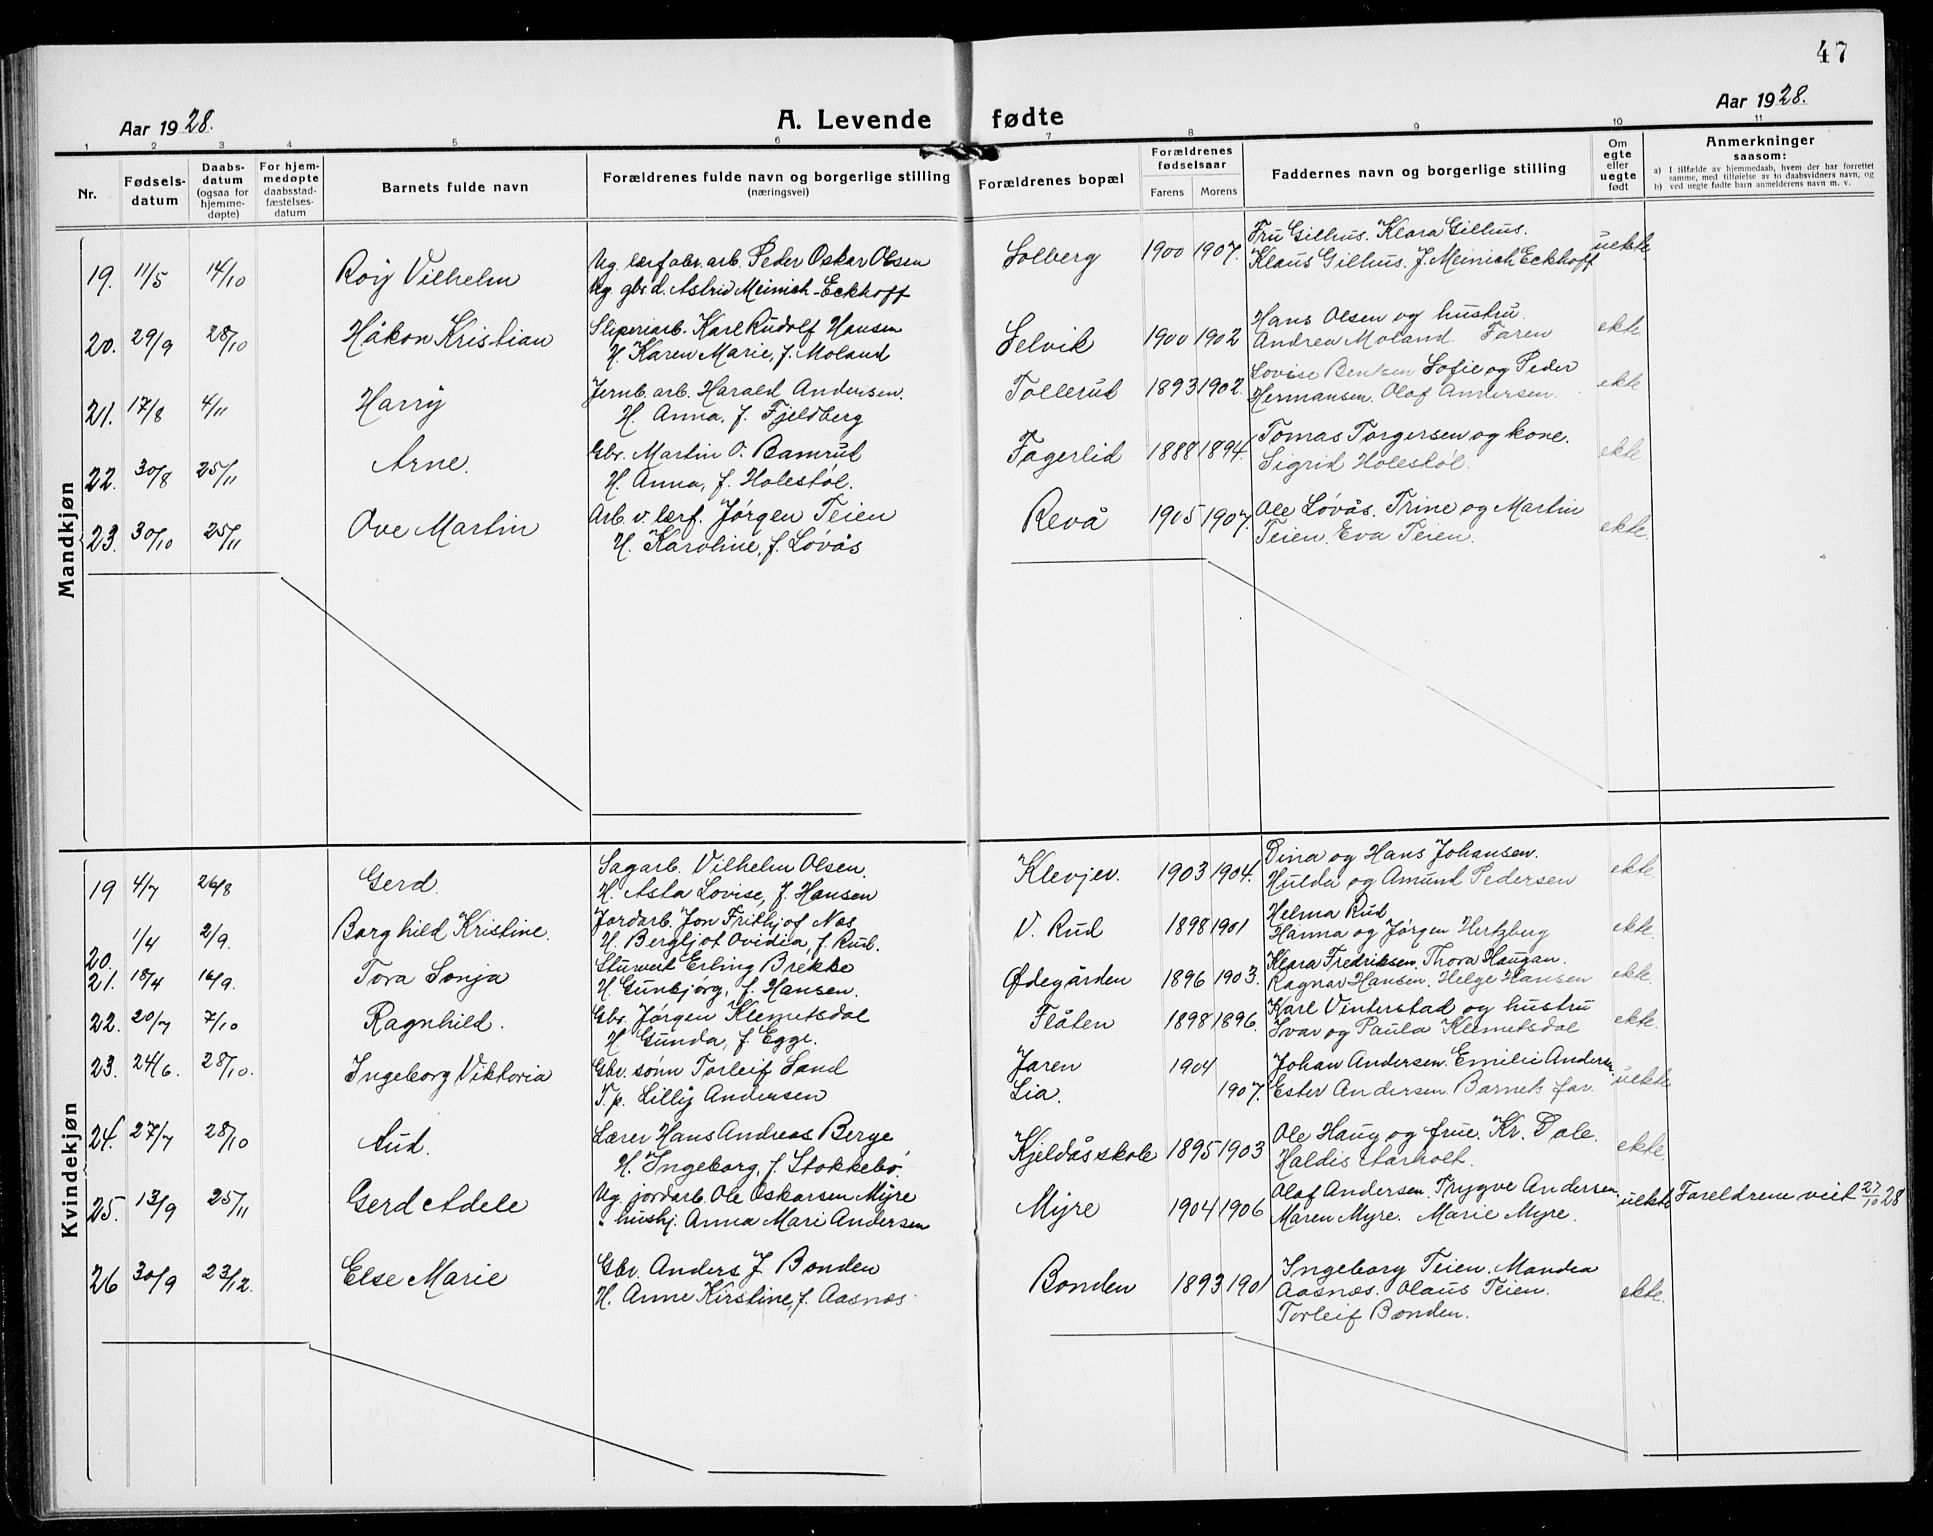 47
Aar 1928.
A. Levende fødte
Aar 1928.
1 2 3 4 5 6 7 8 9 10 11
Nr.
Fødsels-
datum
Daabs-
datum
(ogsaa for
hjemme-
døpte)
For hjem-
medøpte
daabsstad-
fæstelses-
datum
Barnets fulde navn
Forældrenes fulde navn og borgerlige stilling
(næringsvei)
Forældrenes bopæl
Forældrenes
fødselsaar
Farens Morens
Faddernes navn og borgerlige stilling
Om
egte
eller
uegte
født
Anmerkninger
saasom:
a) I tilfælde av hjemmedaab, hvem der har forrettet
samme, med tilføielse av to daabsvidners navn, og
b) ved uegte fødte barn anmelderens navn m. v.
Mandkjøn
19. 11/5 14/10 Roy Vilhelm
Ug. lærfabr. arb. Peder Oskar Olsen
Ug. gbr.d. Astrid Meinich-Eckhoff
Solberg 1900 1907.
Fru Gilhus. Klara Gilhus.
Klaus Gilhus. J. Meinich Eckhoff
uekte
20. 29/9 28/10 Håkon Kristian
Sliperiarb. Karl Rudolf Hansen
H. Karen Marie, f. Moland
Selvik 1900 1902
Hans Olsen og hustru
Andrea Moland. Faren
ekte
21. 17/8 4/11 Harry
Jernb. arb. Harald Andersen.
H. Anna, f. Fjeldberg
Tollerud 1893 1902.
Lovise Bentsen Sofie og Peder
Hermansen. Olaf Andersen.
ekte
22. 30/8 25/11 Arne.
Gbr. Martin O. Bamrud
H. Anna, f. Holestøl.
Fagerlid 1888 1894.
Tomas Torgersen og kone.
Sigrid Holestøl.
ekte
23. 30/10 25/11 Ove Martin
Arb. v. lærf. Jørgen Teien
H. Karoline, f. Løvås
Revå 1905 1907.
Ole Løvås. Trine og Martin
Teien. Eva Teien.
ekte.
Kvindekjøn
19 4/7 26/8 Gerd.
Sagarb. Vilhelm Olsen.
H. Asta Lovise, f. Hansen
Klevjer. 1903 1904.
Dina og Hans Johansen.
Hulda og Amund Pedersen
ekte.
20. 1/4 2/9. Borghild Kristine.
Jordarb. Jon Frithjof Nos
H. Bergljot Ovidia, f. Rud.
V. Rud 1898 1901
Helma Rud
Hanna og Jørgen Hertzberg
ekte.
21. 18/4 16/9. Tora Sonja
Stuwert Erling Brekke
H. Gunbjorg, f. Hansen.
Ødegården 1896 1903.
Klara Fredriksen. Thora Haugan.
Ragnar Hansen. Helge Hansen
ekte.
22. 20/7 7/10 Ragnhild.
Gbr. Jørgen Klemetsdal
H. Gunda, f. Egge.
Flåten 1898 1896.
Karl Vinterstad og hustru
Ivar og Paula Klemetsdal
ekte.
23. 24/6. 28/10. Ingeborg Viktoria
Gbr. sønn Torleif Sand
T.p. Lilly Andersen
Jaren 1904
Lia. 1907.
Johan Andersen. Emilie Andersen.
Ester Andersen. Barnets far.
uekte
24. 27/7 28/10 Aud.
Lærer Hans Andreas Berge
H. Ingeborg, f. Stokkebø.
Kjeldås skole 1895 1903
Ole Haug og frue. Kr. Dale.
Haldis Aarholt.
ekte.
25. 13/9 25/11 Gerd Adele
Ug. jordarb. Ole Oskarsen Myre
" hushj. Anna Mari Andersen
Myre 1904 1906
Olaf Andersen. Trygve Andersen.
Maren Myre. Marie Myre.
uekte Foreldrene viet 27/10 28
26 30/9 23/12. Else Marie
Gbr. Anders J. Bonden
H. Anne Kirstine, f. Aasnæs.
Bonden 1893 1901
Ingeborg Teien. Mandea
Aasnæs. Olaus Teien.
Torleif Bonden.
ekte.